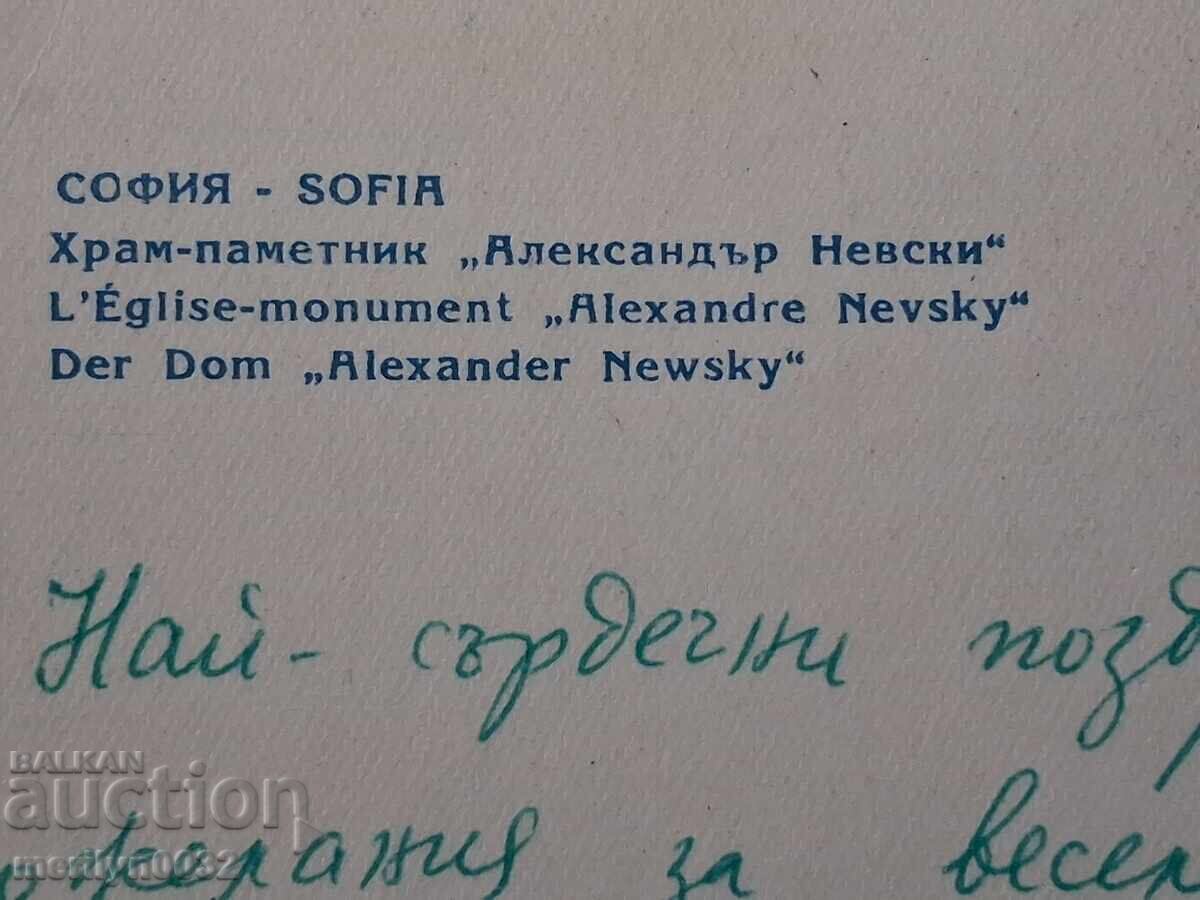 СОФИЯ - SOFIA
Храм-паметник „Александър Невски“
L'Église-monument „Alexandre Nevsky“
Der Dom „Alexander Newsky“
Най-сърдечни позд
за весел
BALKAN
auction
merilyn0032